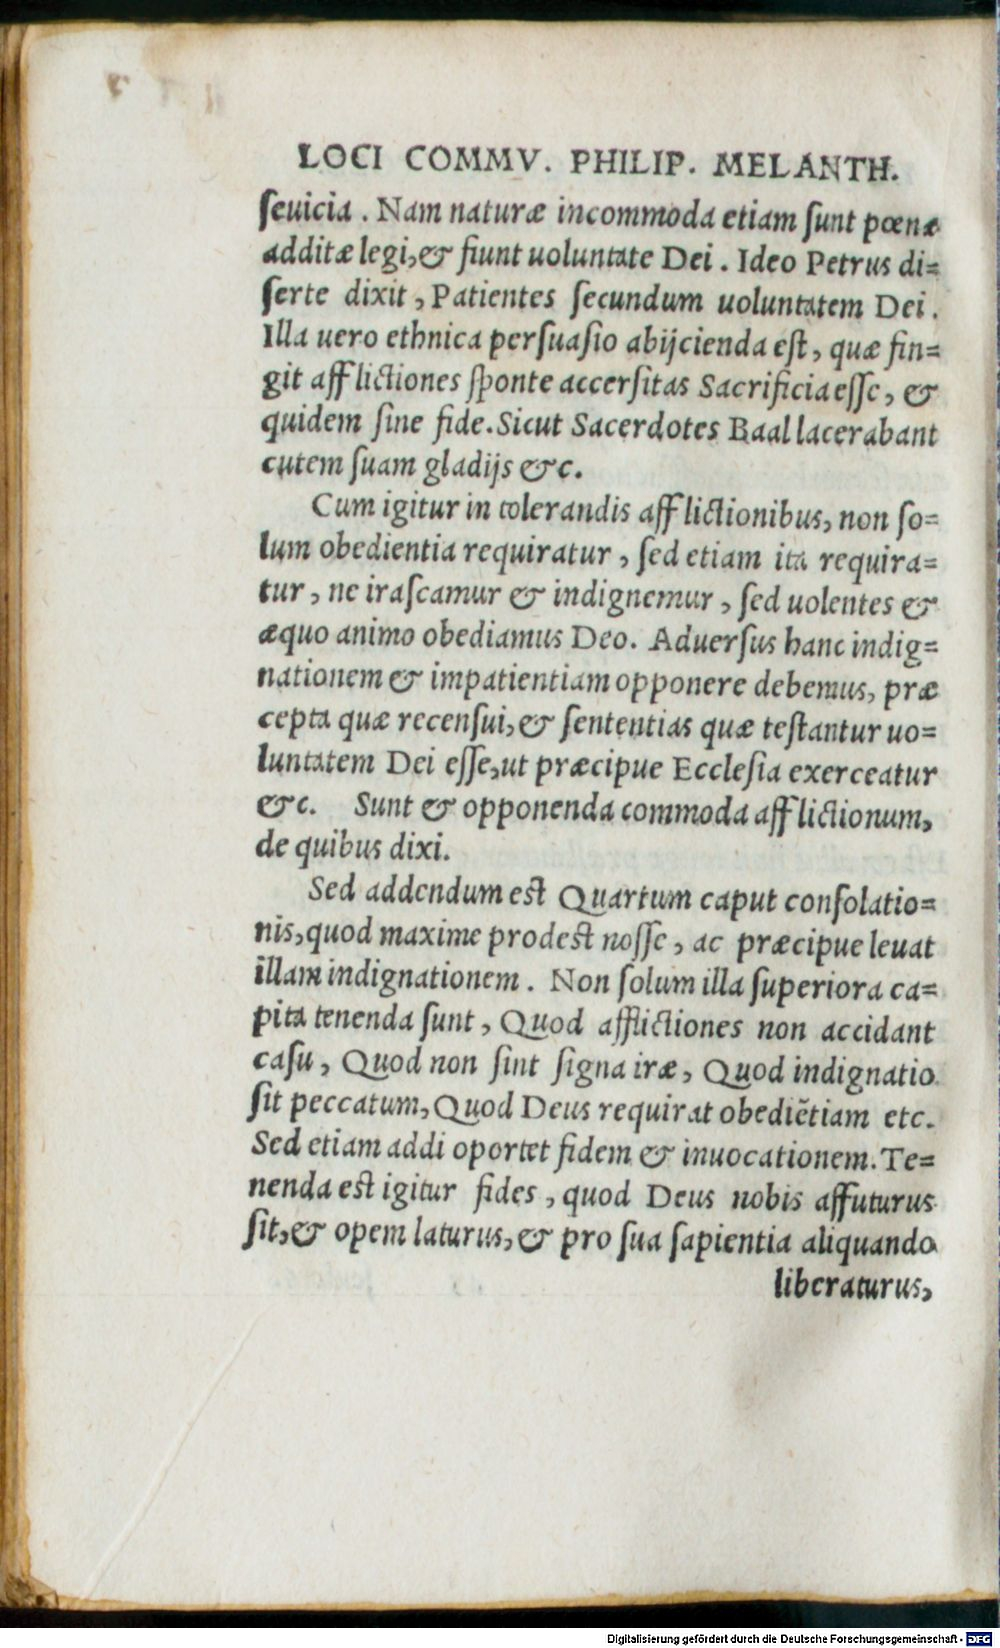 LOCI COMMV. PHILIP. MELANTH.
ſeuicia . Nam naturæ incommoda etiam ſunt pœnæ
additæ legi, & fiunt uoluntate Dei . Ideo Petrus di=
ſerte dixit , Patientes ſecundum uoluntatem Dei .
Illa uero ethnica perſuaſio abijcienda eſt, quæ fin=
git afflictiones ſponte accerſitas Sacrificia eſſe, &
quidem ſine fide. Sicut Sacerdotes Baal lacerabant
cutem ſuam gladijs &c.
Cum igitur in tolerandis afflictionibus, non ſo=
lum obedientia requiratur , ſed etiam ita requira=
tur , ne iraſcamur & indignemur , ſed uolentes &
æquo animo obediamus Deo. Aduerſus hanc indig=
nationem & impatientiam opponere debemus, præ
cepta quæ recenſui, & ſententias quæ teſtantur uo=
luntatem Dei eſſe, ut præcipue Eccleſia exerceatur
&c. Sunt & opponenda commoda afflictionum,
de quibus dixi.
Sed addendum eſt Quartum caput conſolatio=
nis, quod maxime prodeſt noſſe , ac præcipue leuat
illam indignationem . Non ſolum illa ſuperiora ca=
pita tenenda ſunt , Quod afflictiones non accidant
caſu , Quod non ſint ſigna iræ , Quod indignatio
ſit peccatum, Quod Deus requirat obediẽtiam etc.
Sed etiam addi oportet fidem & inuocationem. Te=
nenda eſt igitur fides , quod Deus nobis affuturus
ſit, & opem laturus, & pro ſua ſapientia aliquando
liberaturus,
Digitalisierung gefördert durch die Deutsche Forschungsgemeinschaft - DFG